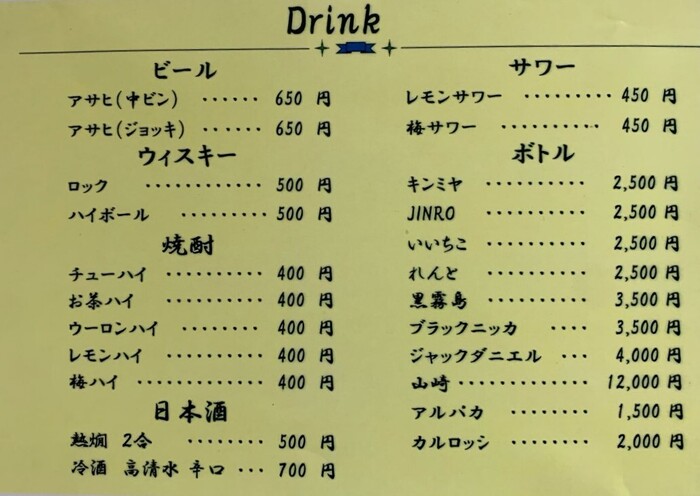 Drink
ビール
アサヒ(中ビン) ‥‥‥ 650 円
アサヒ(ジョッキ) ‥‥‥ 650 円
ウィスキー
ロック ‥‥‥‥‥‥ 500 円
ハイボール ‥‥‥‥‥ 500 円
焼酎
チューハイ ‥‥‥‥‥ 400 円
お茶ハイ ‥‥‥‥‥ 400 円
ウーロンハイ ‥‥‥‥ 400 円
レモンハイ ‥‥‥‥‥ 400 円
梅ハイ ‥‥‥‥‥‥ 400 円
日本酒
熱燗 2合 ‥‥‥‥ 500 円
冷酒 高清水 辛口 ‥・ 700 円
サワー
レモンサワー ‥‥‥‥・ 450 円
梅サワー ‥‥‥‥‥ 450 円
ボトル
キンミヤ ‥‥‥‥‥ 2,500 円
JINRO ‥‥‥‥‥ 2,500 円
いいちこ ‥‥‥‥‥ 2,500 円
れんと ‥‥‥‥‥ 2,500 円
黒霧島 ‥‥‥‥‥ 3,500 円
ブラックニッカ ‥‥ 3,500 円
ジャックダニエル ‥・ 4,000 円
山崎 ‥‥‥‥‥‥ 12,000 円
アルパカ ‥‥‥‥ 1,500 円
カルロッシ ‥‥‥‥ 2,000 円